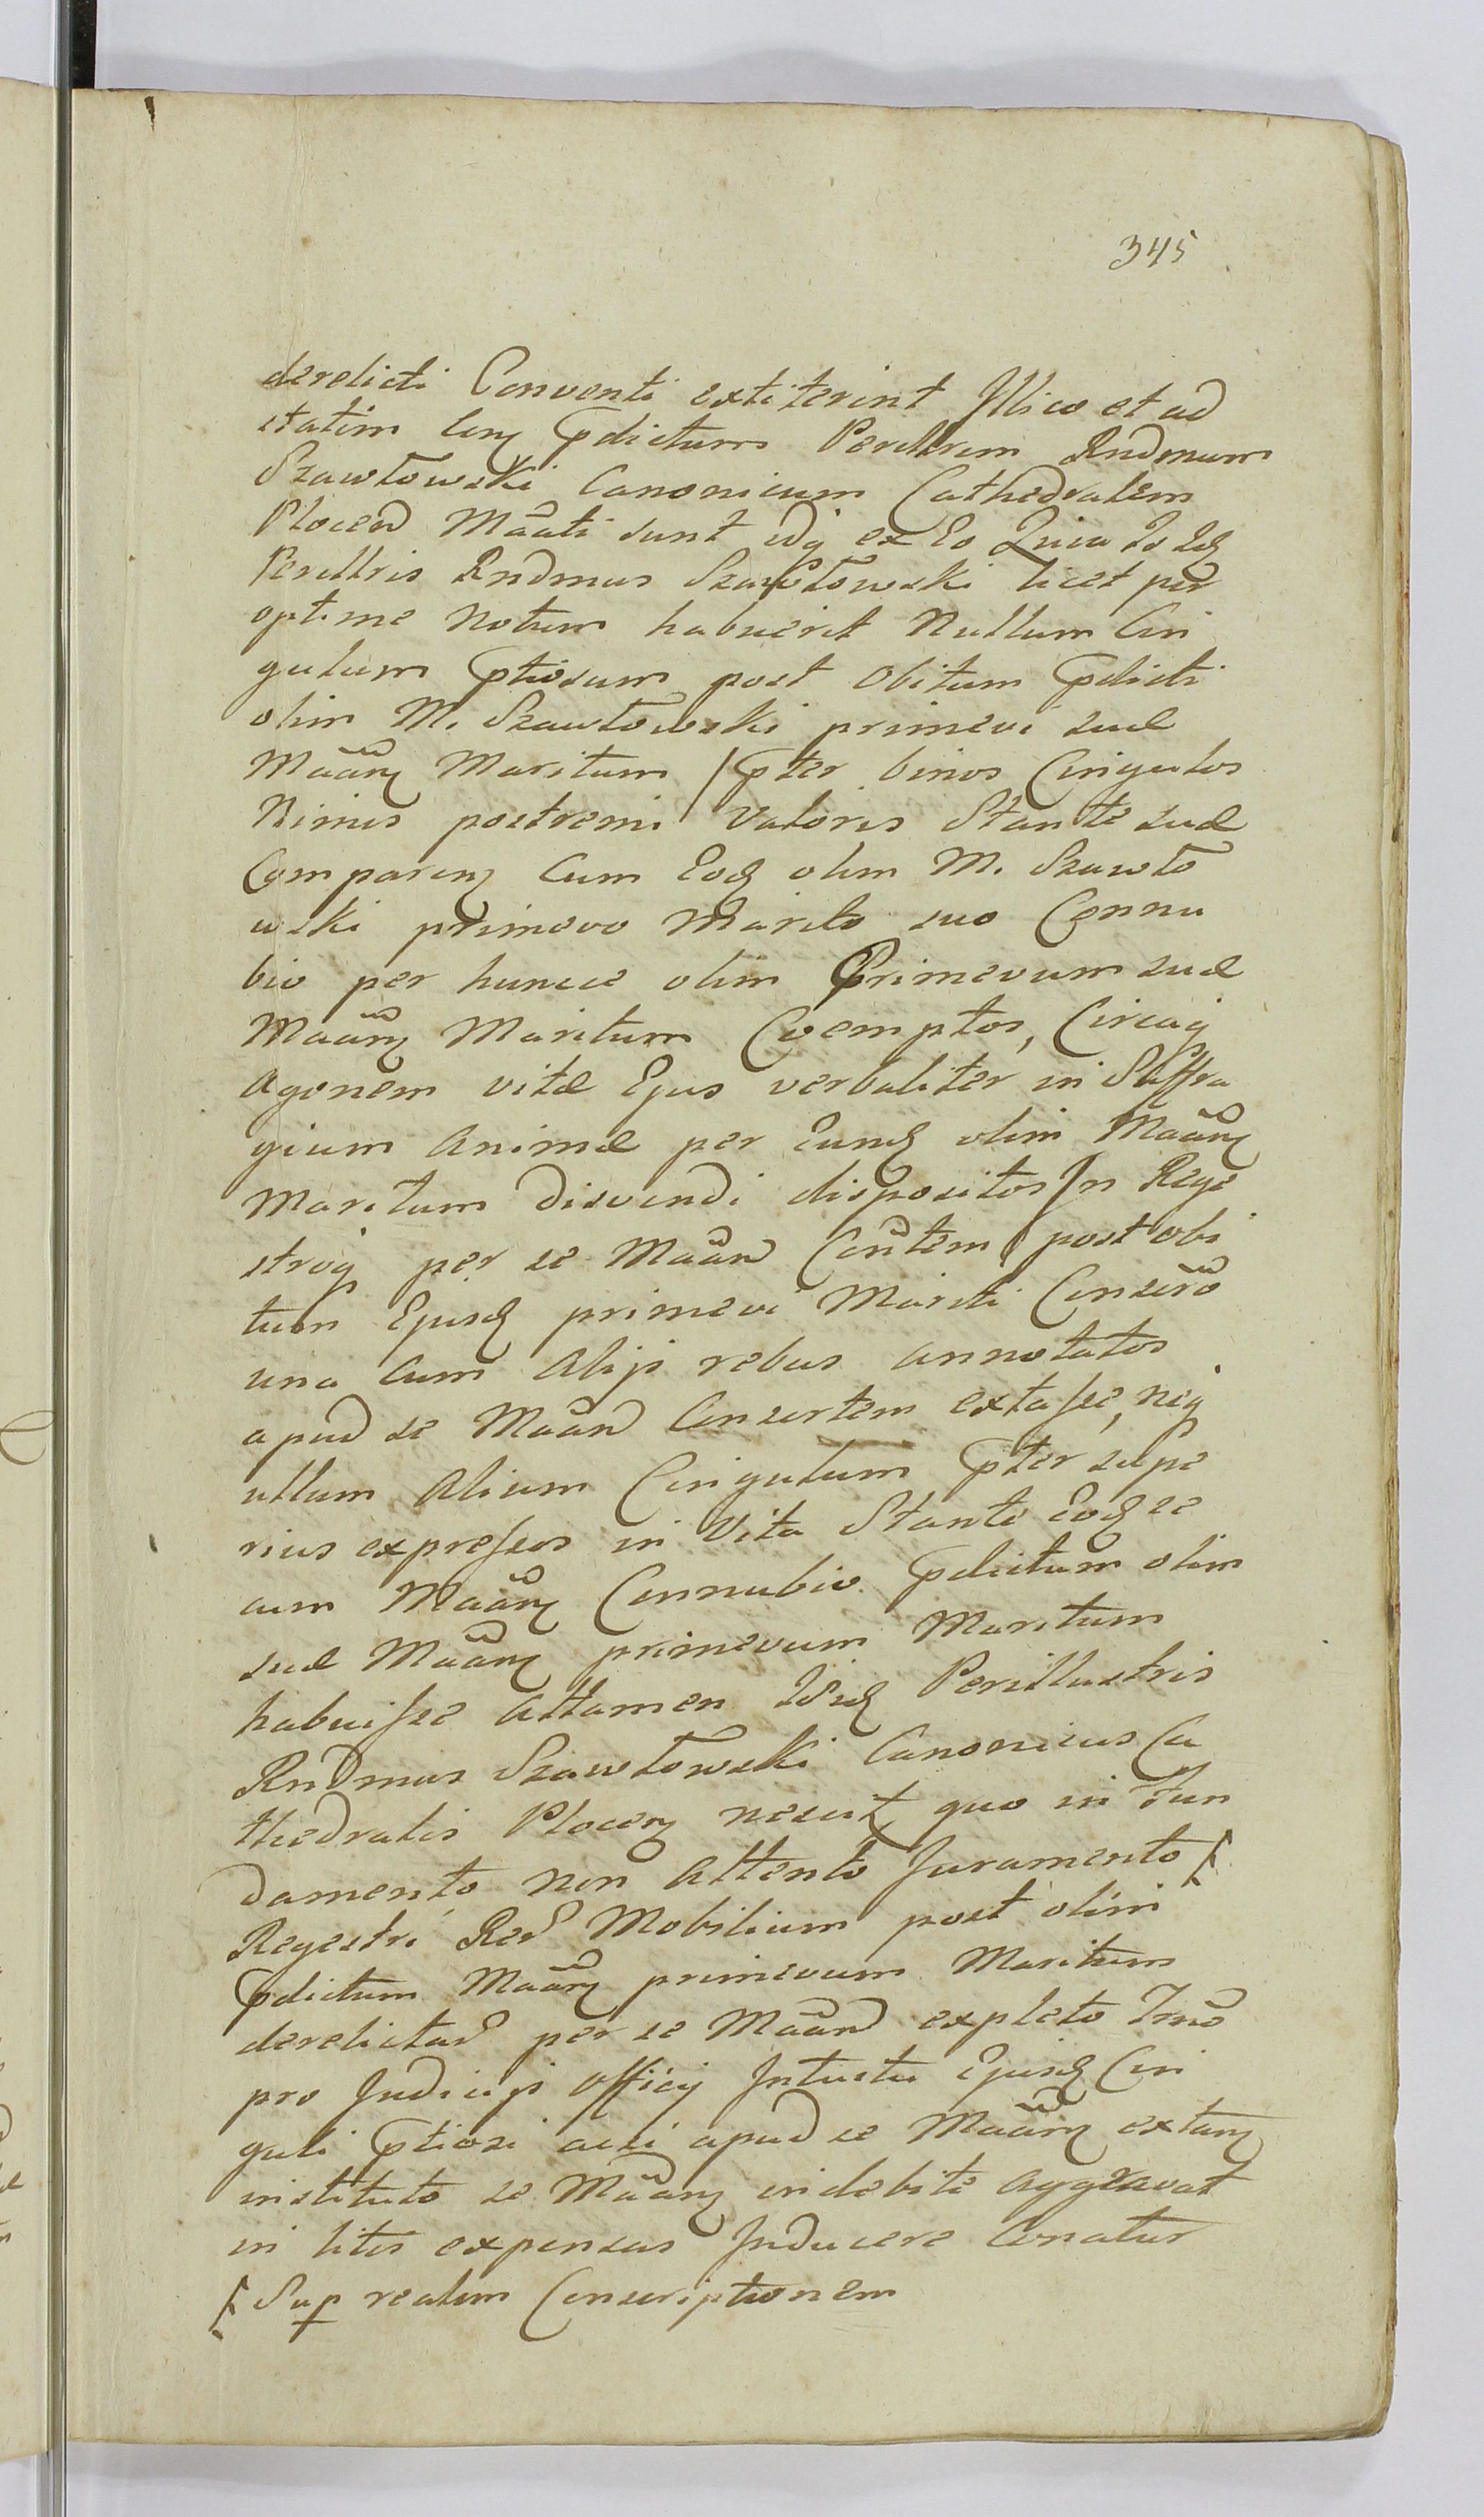 345
derelicti Conventi extiterint Illico et ad
statim Cerz pdictum Perillrem Rndmum
Szawłowski Canonicum Cathedralem
Plocen Mãati sunt idq ex Eo Quia Is Idq
Perillris Rndmus Szawłowski licet per
optime Notum habuerit Nullum Cin
gulum ptiosum post Obitum pdicti
olim M. Szawłowski primevi suæ
Mãarz Maritum / pter binos Cingulos
Nimis postremi Valoris Stante suæ
Comparenz Cum Eodq olim M. Szawło
wski primevo Marito suo Connu
bio per huncce olim Primevum suæ
Mãarz Maritum Coemptos, Circaq
Agonem vitæ Ejus verbaliter in Suffra
gium Animæ per Eundq olim Mãarz
Maritum disvendi dispositos In Rege
stroq per se Mãan Cõntem post obi
tum Ejusdq primevi Mariti Conscrõ
una Cum Alijs rebus annotatos
apud se Mãan Consortem extasse, neq
ullum Alium Cingulum pter supe
rius expressos in Vita Stante Eodq se
cum Mãarz Connubio pdictum olim
suæ Mãarz primevum Maritum
habuisse Attamen Idq Perillustris
Rndmus Szawłowski Canonicus Ca
thedralis Plocenz nescit, quo in fun
damento, non Attento Juramento
Regestri Rer Mobilium post olim
pdictum Mãarz primevum Maritum
derelictar per se Mãan expleto Tmõ
pro Judicijs Officij Intuitu Ejusdq Cin
guli ptiosi acsi apud se Mãarz extanz
instituto se Mãanz indebite Aggravat
in litis expensas Inducere Conatur
Sup realem Conscriptionem